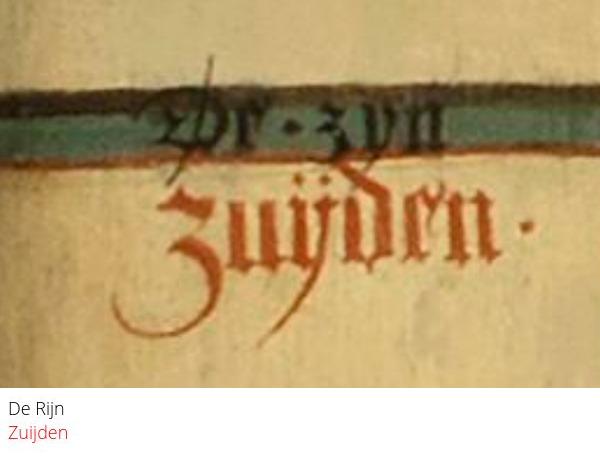 De · Ryn
Zuijden ·
De Rijn
Zuijden